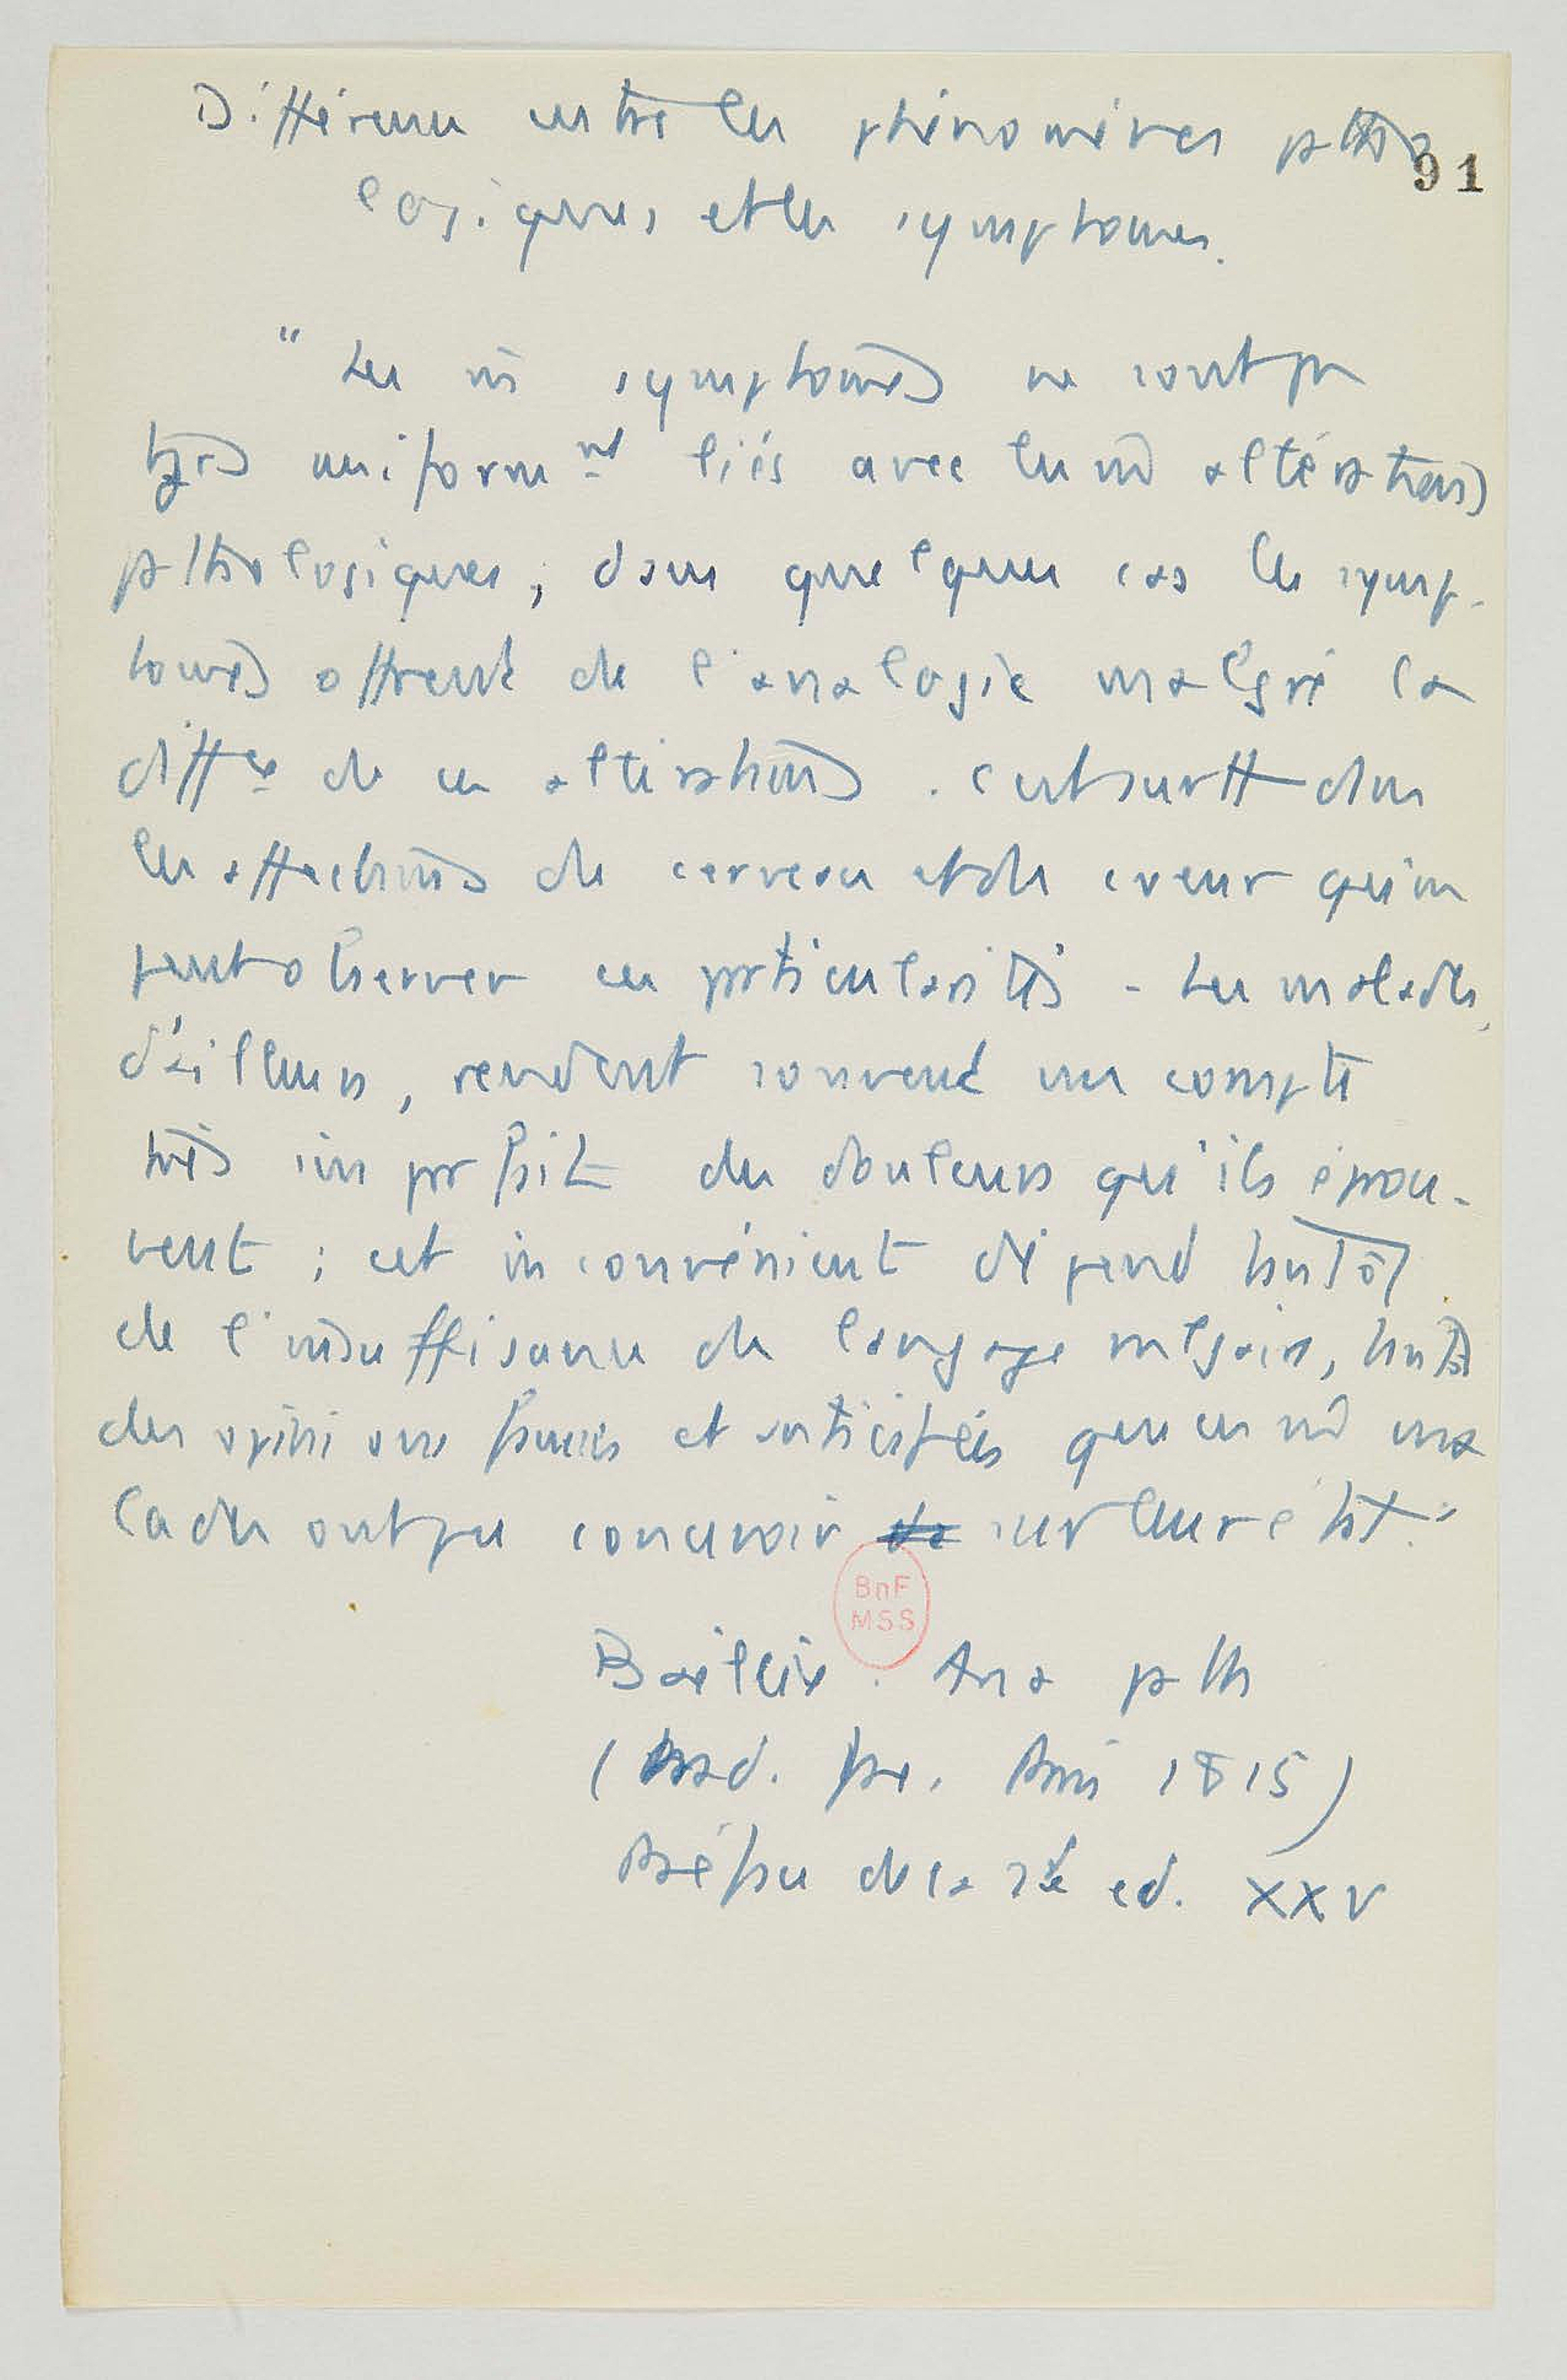 Différence entre les phénomènes patho
91
logiques et les symptomes.
" Les m̂ symptomes ne sont pas
tjrs uniformnt liés avec les m̂ altérations
pathologiques ; dans quelques cas les symp-
tomes offrent de l'analogie malgré la
diffce de ces altérations. C'est surtt dans
les affections du cerveau et du coeur qu'on
peut observer ces particularités - Les malades,
d'ailleurs, rendent souvent un compte
très imparfait des douleurs qu'ils éprou-
vent ; cet inconvénient dépend tantôt
de l'insuffisance du langage vulgaire, tantôt
des opinions fausses et anticipées que ces m̂ ma
lades ont pu concevoir de sur leur état."
BnF
MSS
Baillie. Ana path
(trad. fse. Paris 1815)
Préface de la 2e ed. XXV